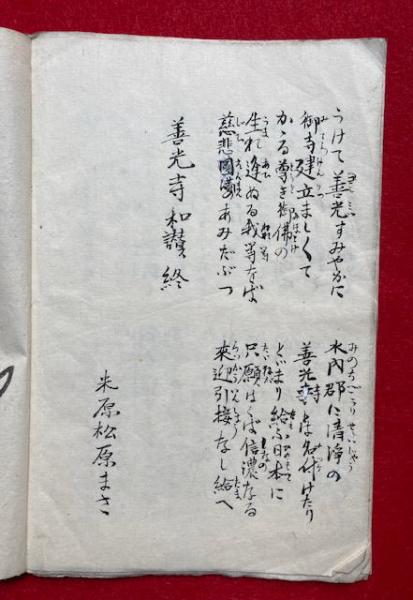 うけて善光すみやかに 水内郡に清浄の
御寺建立ましくて 善光寺とは名付けたり
かゝる尊き御佛の とゞまり給ふ日本に
生れ逢ぬる我等なば 只願はくば信濃なる
慈悲圓満のあみだぶつ 来迎引接なし給へ
善光寺和讃 終
米原松原まさ